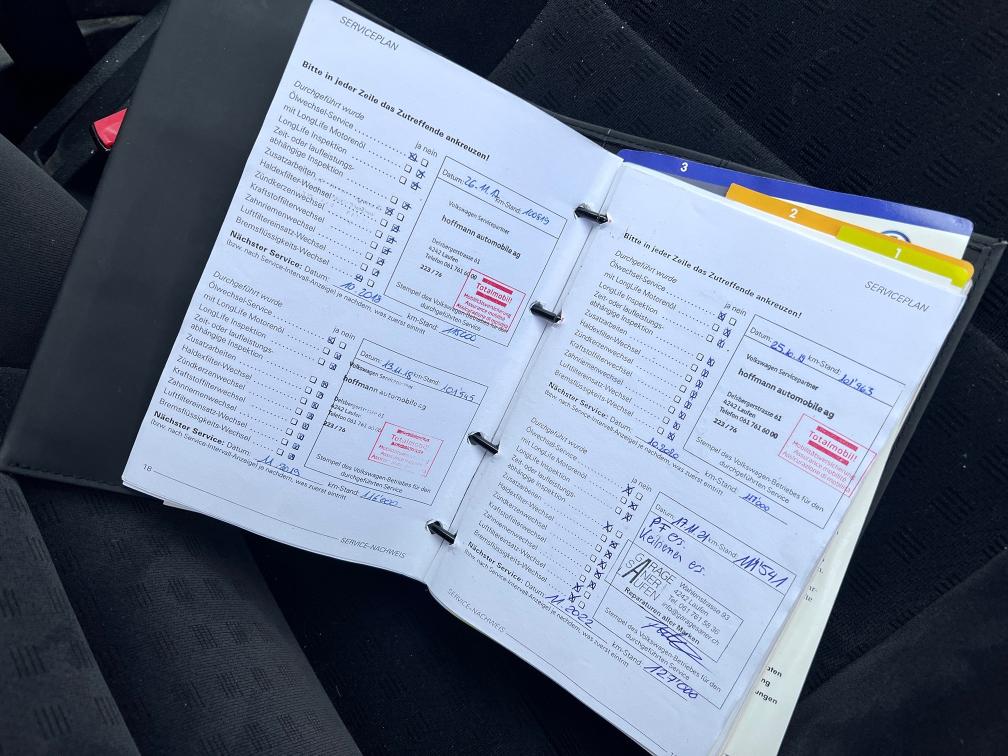 SERVICEPLAN
Bitte in jeder Zeile das Zutreffende ankreuzen!
Durchgeführt wurde
ja nein
Ölwechsel-Service
mit LongLife Motorenöl
LongLife Inspektion
Zeit- oder laufleistungs-
abhängige Inspektion
Zusatzarbeiten
Haldexfilter-Wechsel
Zündkerzenwechsel
Kraftstoffilterwechsel
Zahnriemenwechsel
Luftfiltereinsatz-Wechsel
Bremsflüssigkeits-Wechsel
Nächster Service: Datum: 10.2018
(bzw. nach Service-Intervall-Anzeige) je nachdem, was zuerst eintritt
km-Stand: 115000
Datum: 26.11.17 km-Stand: 100819
Volkswagen Servicepartner
hoffmann automobile ag
Delsbergerstrasse 61
4242 Laufen
Telefon 061 761 60 00
223 / 76
Totalmobil!
Mobilitätsversicherung
Assurance mobilité
Assicurazione di mobilità
Stempel des Volkswagen-Betriebes für den
durchgeführten Service
Durchgeführt wurde
ja nein
Ölwechsel-Service
mit LongLife Motorenöl
LongLife Inspektion
Zeit- oder laufleistungs-
abhängige Inspektion
Zusatzarbeiten
Haldexfilter-Wechsel
Zündkerzenwechsel
Kraftstoffilterwechsel
Zahnriemenwechsel
Luftfiltereinsatz-Wechsel
Bremsflüssigkeits-Wechsel
Nächster Service: Datum: 11.2019
(bzw. nach Service-Intervall-Anzeige) je nachdem, was zuerst eintritt
km-Stand: 116'000
Datum: 13.11.18 km-Stand: 101'545
Volkswagen Servicepartner
hoffmann automobile ag
Delsbergerstrasse 61
4242 Laufen
Telefon 061 761 60 00
223 / 76
Totalmobil!
Stempel des Volkswagen-Betriebes für den
durchgeführten Service
18
SERVICE-NACHWEIS
3
2
1
SERVICEPLAN
Bitte in jeder Zeile das Zutreffende ankreuzen!
Durchgeführt wurde
ja nein
Ölwechsel-Service
mit LongLife Motorenöl
LongLife Inspektion
Zeit- oder laufleistungs-
abhängige Inspektion
Zusatzarbeiten
Haldexfilter-Wechsel
Zündkerzenwechsel
Kraftstoffilterwechsel
Zahnriemenwechsel
Luftfiltereinsatz-Wechsel
Bremsflüssigkeits-Wechsel
Nächster Service: Datum: 10.2020
(bzw. nach Service-Intervall-Anzeige) je nachdem, was zuerst eintritt
km-Stand: 117'000
Datum: 25.10.19 km-Stand: 101'963
Volkswagen Servicepartner
hoffmann automobile ag
Delsbergerstrasse 61
4242 Laufen
Telefon 061 761 60 00
223 / 76
Totalmobil!
Mobilitätsversicherung
Assurance mobilité
Assicurazione di mobilità
Stempel des Volkswagen-Betriebes für den
durchgeführten Service
Durchgeführt wurde
ja nein
Ölwechsel-Service
mit LongLife Motorenöl
LongLife Inspektion
Zeit- oder laufleistungs-
abhängige Inspektion
Zusatzarbeiten
Haldexfilter-Wechsel
Zündkerzenwechsel
Kraftstoffilterwechsel
Zahnriemenwechsel
Luftfiltereinsatz-Wechsel
Bremsflüssigkeits-Wechsel
Nächster Service: Datum: 11.2022
(bzw. nach Service-Intervall-Anzeige) je nachdem, was zuerst eintritt
km-Stand: 127'000
Datum: 17.11.21 km-Stand: 111'541
PF es.
Keilriemen ers.
GARAGE
SANER
LAUFEN
Wahlenstrasse 93
4242 Laufen
Tel. 061 761 58 36
info@garagesaner.ch
Reparaturen aller Marken
Stempel des Volkswagen-Betriebes für den
durchgeführten Service
SERVICE-NACHWEIS